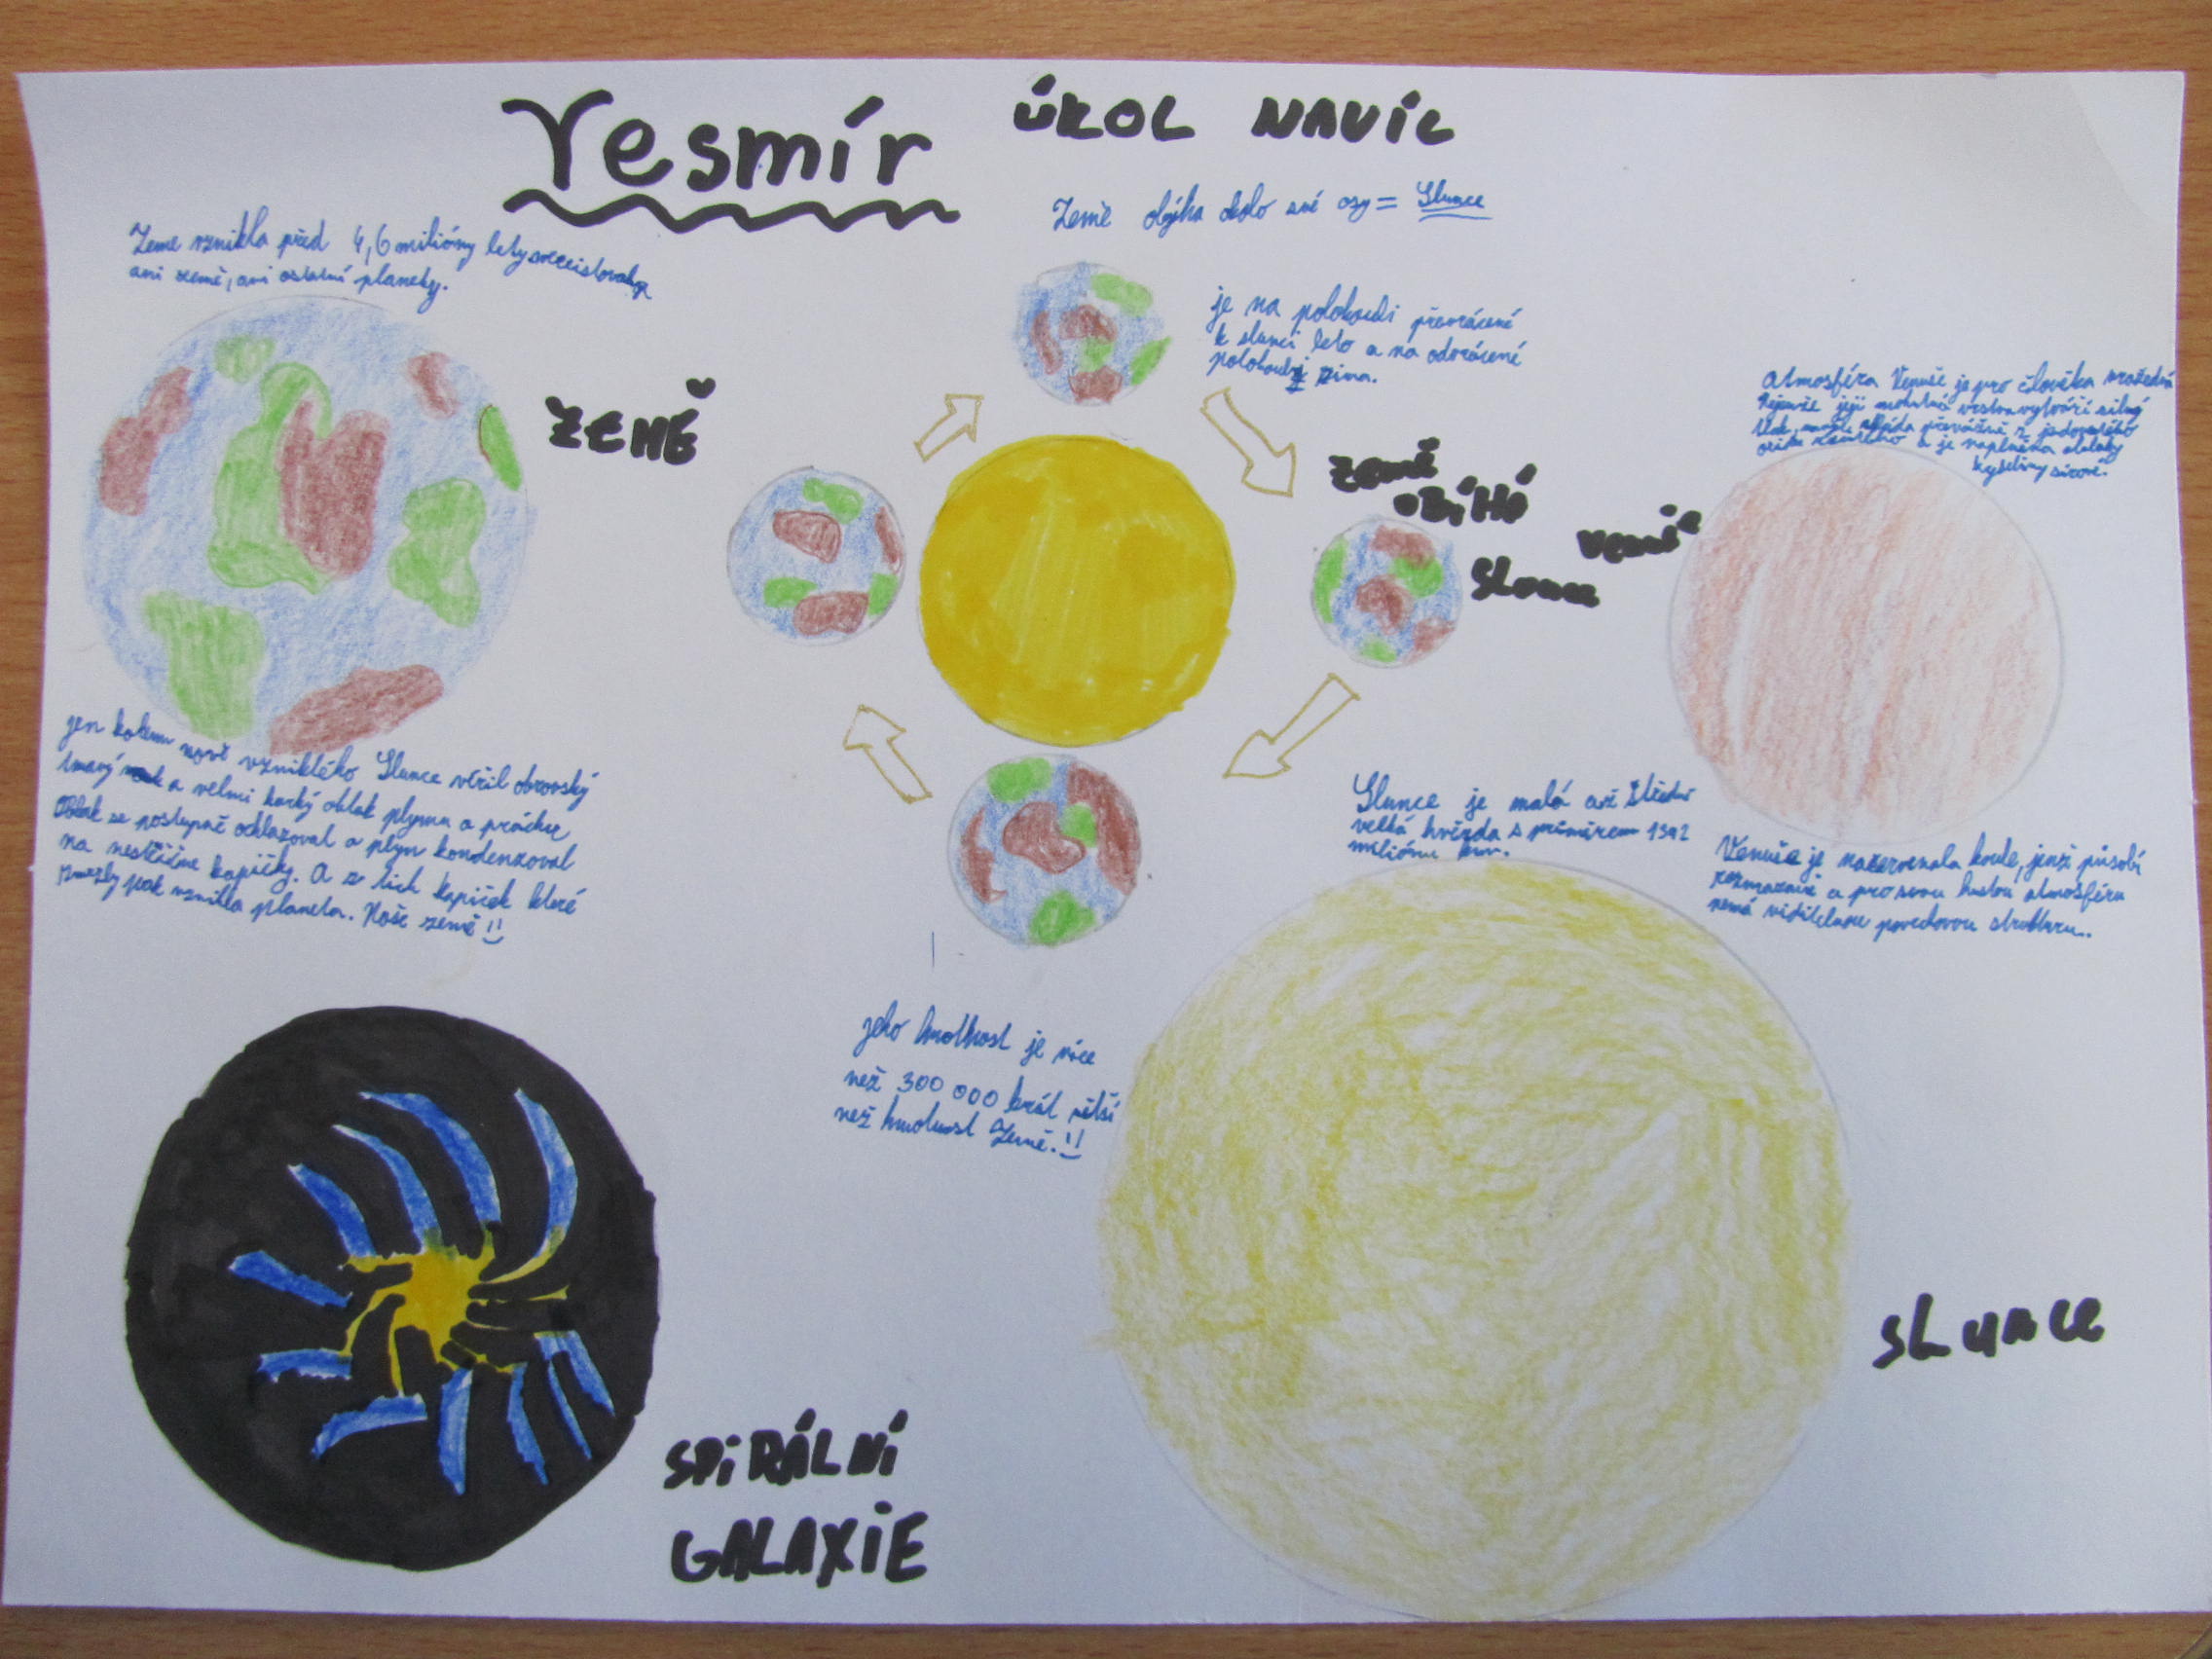 Vesmír
ÚKOL NAVÍC
Země obýha okolo své osy = Slunce
Země vznikla před 4,6 milióny lety
ani země, ani ostatní planety.
ZEMĚ
je na polokouli převrácené
k slunci leto a na odvrácené
polokouli zima.
ZEMĚ
OBÍHÁ
Slunce
Atmosféra Venuše je pro člověka
její vrstva vytváří silný
převážně z jedovatého
a je naplněna oblaky
kyseliny sírové.
jen kolem nově vzniklého Slunce vířil obrovský
tmavý a velmi horký oblak plynu a prachu
Oblak se postupně ochlazoval a plyn kondenzoval
na nesčíslne kapičky. A z tich kapiček které
zmrzly pak vznikla planeta. Naše země!!
Slunce je malá až středně
velká hvězda s průměrem 1392
miliónu km.
Venuše je načervenala koule, jenž působí
rozmazaně a pro svou hustou atmosféru
nemá viditelnou povrchovou strukturu..
jeho hmotnost je více
než 300 000 krát větší
než hmotnost Země.!!
SLUNCE
SPIRÁLNÍ
GALAXIE